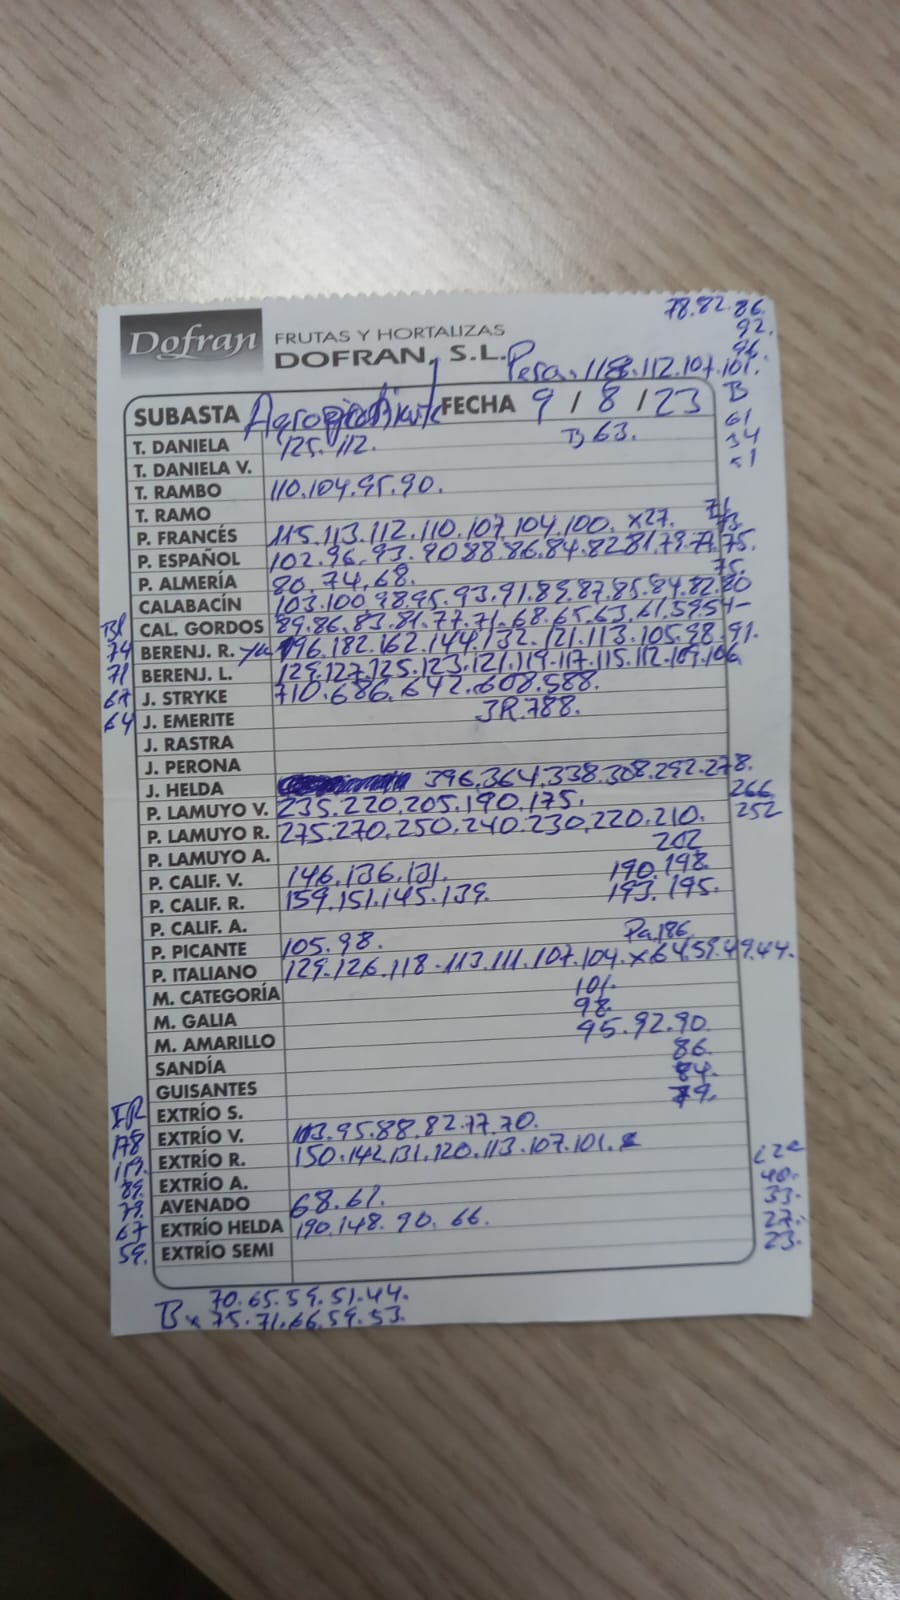 78.82.86.
92.
96.
Dofran FRUTAS Y HORTALIZAS
DOFRAN, S.L.
Pera. 118.112.107.101.
SUBASTA FECHA 9 / 8 / 23 B
T. DANIELA 125.112. B 63. 61
T. DANIELA V. 54
51
T. RAMBO 110.104.95.90.
T. RAMO 71
P. FRANCÉS 115.113.112.110.107.104.100. x27. 73
P. ESPAÑOL 102.96.93.90 88.86.84.82 81.79.77.75.
P. ALMERÍA 80.74.68. 75.
CALABACÍN 103.100.98.95.93.91.89.87.85.84.82.80
CAL. GORDOS 89.86.83.81.77.71.68.65.63.61.59 54-
74 BERENJ. R. 196.182.162.144.132.121.113.105.98.91.
71 BERENJ. L. 129.127.125.123.121.119.117.115.112.109.106
67 J. STRYKE 710.686.642.608.588.
64 J. EMERITE JR.788.
J. RASTRA
J. PERONA
J. HELDA 396.364.338.308.292.278.
266
P. LAMUYO V. 235.220.205.190.175. 252
P. LAMUYO R. 275.270.250.240.230.220.210.
P. LAMUYO A. 202
P. CALIF. V. 146.136.131. 190.198.
P. CALIF. R. 159.151.145.139. 193.195.
P. CALIF. A.
P. PICANTE 105.98. Pa.186.
P. ITALIANO 129.126.118.113.111.107.104. x64.59.49.44.
M. CATEGORÍA 101.
M. GALIA 98.
M. AMARILLO 95.92.90.
SANDÍA 86.
GUISANTES 84.
79.
EXTRÍO S.
178 EXTRÍO V. 113.95.88.82.77.70.
119. EXTRÍO R. 150.142.131.120.113.107.101.
89. EXTRÍO A. 40.
79. AVENADO 68.61. 33.
67 EXTRÍO HELDA 190.148.90.66. 27.
59. EXTRÍO SEMI 23.
70.65.59.51.44.
B x 75.71.66.59.53.